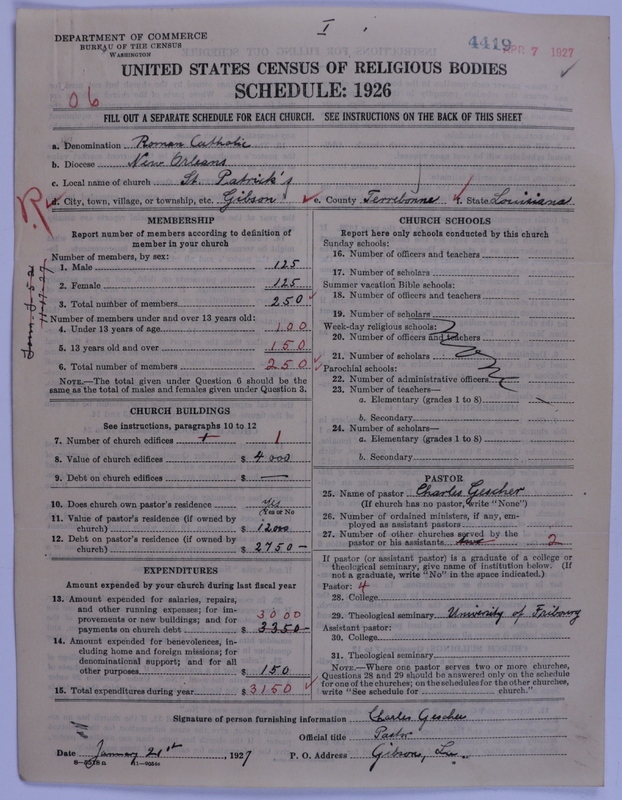 I
DEPARTMENT OF COMMERCE
BUREAU OF THE CENSUS
WASHINGTON
4419 APR 7 1927
UNITED STATES CENSUS OF RELIGIOUS BODIES
SCHEDULE: 1926
06
FILL OUT A SEPARATE SCHEDULE FOR EACH CHURCH. SEE INSTRUCTIONS ON THE BACK OF THIS SHEET
a. Denomination Roman Catholic
b. Diocese New Orleans
c. Local name of church St. Patrick's
d. City, town, village, or township, etc. Gibson e. County Terrebonne f. State Louisiana
R
MEMBERSHIP
Report number of members according to definition of
member in your church
Number of members, by sex:
1. Male 125
2. Female 125
3. Total number of members 250
Number of members under and over 13 years old:
4. Under 13 years of age 100
5. 13 years old and over 150
6. Total number of members 250
NOTE.—The total given under Question 6 should be the
same as the total of males and females given under Question 3.
CHURCH BUILDINGS
See instructions, paragraphs 10 to 12
7. Number of church edifices 1
8. Value of church edifices $ 4000
9. Debt on church edifices $ —
10. Does church own pastor's residence yes
(Yes or No
11. Value of pastor's residence (if owned by
church) $ 1200
12. Debt on pastor's residence (if owned by
church) $ 2750—
EXPENDITURES
Amount expended by your church during last fiscal year
13. Amount expended for salaries, repairs,
and other running expenses; for im-
provements or new buildings; and for 3000
payments on church debt $ 3350—
14. Amount expended for benevolences, in-
cluding home and foreign missions; for
denominational support; and for all
other purposes $ 150
15. Total expenditures during year $ 3150
CHURCH SCHOOLS
Report here only schools conducted by this church
Sunday schools:
16. Number of officers and teachers
17. Number of scholars
Summer vacation Bible schools:
18. Number of officers and teachers
19. Number of scholars
Week-day religious schools:
20. Number of officers and teachers
21. Number of scholars
Parochial schools:
22. Number of administrative officers
23. Number of teachers—
a. Elementary (grades 1 to 8)
b. Secondary
24. Number of scholars—
a. Elementary (grades 1 to 8)
b. Secondary
PASTOR
25. Name of pastor Charles Gescher
(If church has no pastor, write "None")
26. Number of ordained ministers, if any, em-
ployed as assistant pastors
27. Number of other churches served by the
pastor or his assistants two 2
If pastor (or assistant pastor) is a graduate of a college or
theological seminary, give name of institution below. (If
not a graduate, write "No" in the space indicated.)
Pastor: 4
28. College
29. Theological seminary University of Fribourg
Assistant pastor:
30. College
31. Theological seminary
NOTE.—Where one pastor serves two or more churches,
Questions 28 and 29 should be answered only on the schedule
for one of the churches; on the schedules for the other churches,
write "See schedule for church."
Signature of person furnishing information Charles Gescher
Official title Pastor
Date January 21th, 1927 P. O. Address Gibson, La.